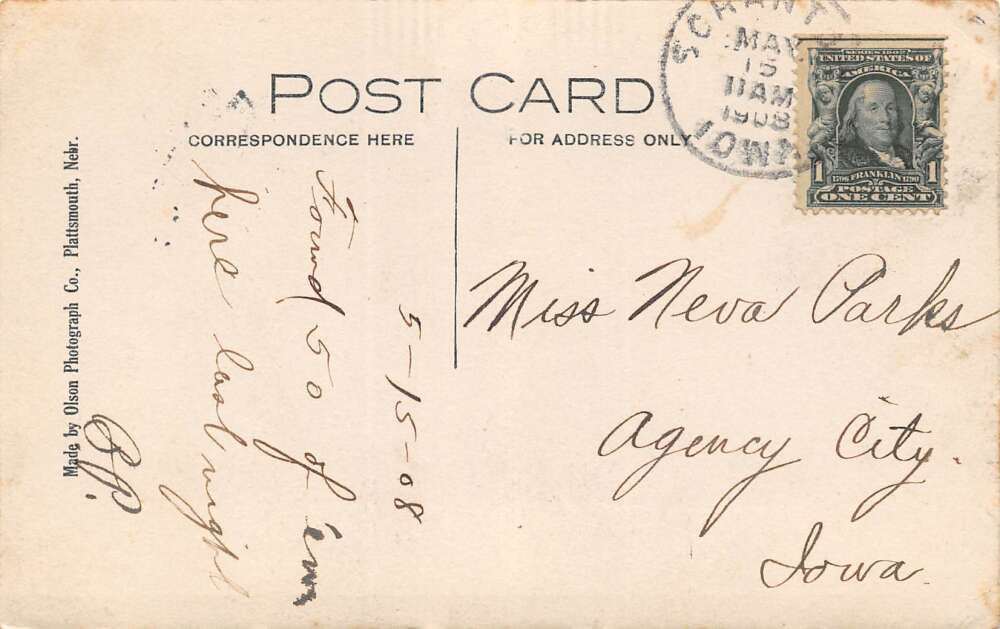 POST CARD
CORRESPONDENCE HERE
FOR ADDRESS ONLY
SCRANTON
MAY
15
11AM
1908
IOWA
SERIES 1902
UNITED STATES OF
AMERICA
1706 FRANKLIN 1790
1 POSTAGE 1
ONE CENT
Made by Olson Photograph Co., Plattsmouth, Nebr.
5-15-08
Found 50 of 'em
here last night
Miss Neva Parks
Agency City.
Iowa.